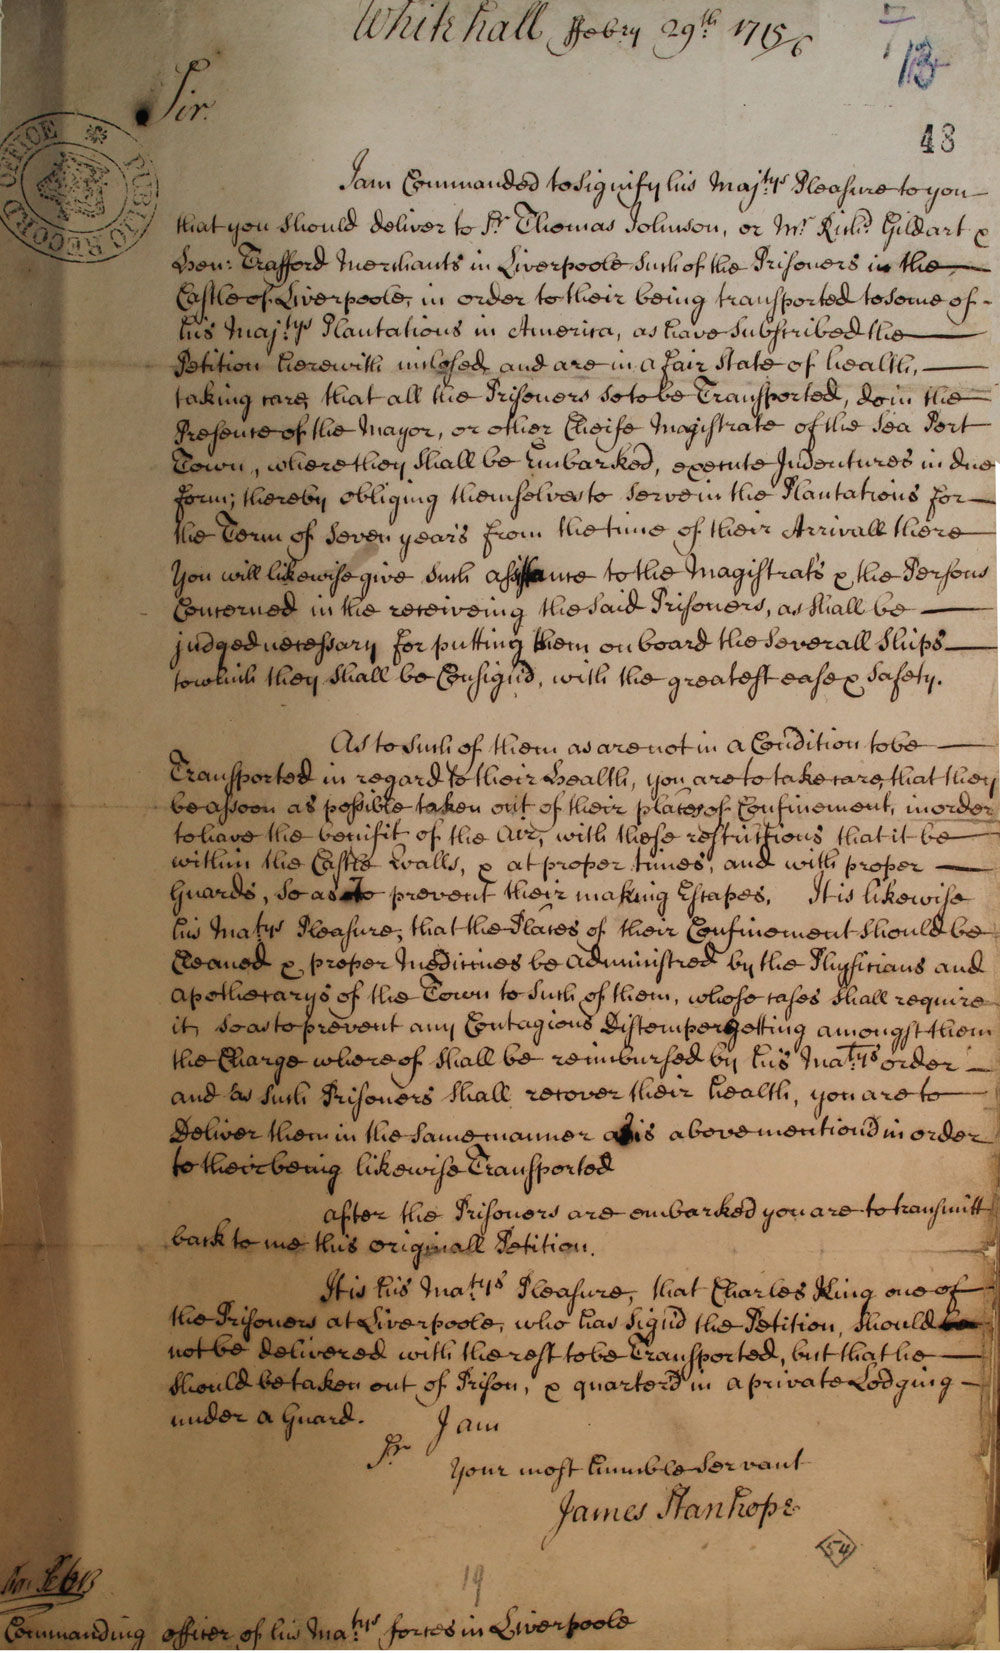 Whitehall ffebry 29th 1715/6
13
Sir.
48
PUBLIC RECORD OFFICE
I am Commanded to signify his Maj:tys Pleasure to you
that you should deliver to Sr. Thomas Johnson, or Mr. Richd. Gildart &
Hen: Trafford Merchants in Liverpoole such of the Prisoners in the
Castle of Liverpoole, in order to their being transported to some of
his Maj:tys Plantations in America, as have subscribed the
Petition herewith inclosed, and are in a fair state of health,
taking care, that all the Prisoners so to be Transported, do in the
Presence of the Mayor, or other Cheife Magistrate of the Sea Port
Town, where they shall be Embarked, execute Indentures in due
form; thereby obliging themselves to serve in the Plantations for
the Term of seven years from the time of their Arrivall there
You will likewise give such assistance to the Magistrats & the Persons
Concerned in the receiveing the said Prisoners, as shall be
judged necessary for putting them on board the severall Ships
to which they shall be Consign'd, with the greatest ease & safety.
As to such of them as are not in a Condition to be
Transported in regard to their Health, you are to take care, that they
be assoon as possible taken out of their places of Confinement, in order
to have the benifit of the Air, with these restrictions that it be
within the Castle Walls, & at proper times, and with proper
Guards, so as To prevent their making Escapes. It is likewise
his Matys Pleasure, that the Places of their Confinement should be
Cleaned & proper Medicines be administred by the Physicians and
apothecarys of the Town to such of them, whose cases shall require
it, so as to prevent any Contagious Distemper getting amongst them
the Charge where of shall be reimbursed by his Ma:tys order
and as such Prisoners shall recover their health, you are to
Deliver them in the same manner as is above mention'd in order
to their being likewise Transported
after the Prisoners are embarked you are to transmitt
back to me this originall Petition.
It is his Ma:tys Pleasure, that Charles King one of
the Prisoners at Liverpoole, who has sign'd the Petition, should
not be delivered with the rest to be Transported, but that he
should be taken out of Prison, & quarter'd in a private Lodging
under a Guard. I am
Sr
Your most humble servant
James Stanhope
54
19
Commanding officer of his Ma:tys forces in Liverpoole